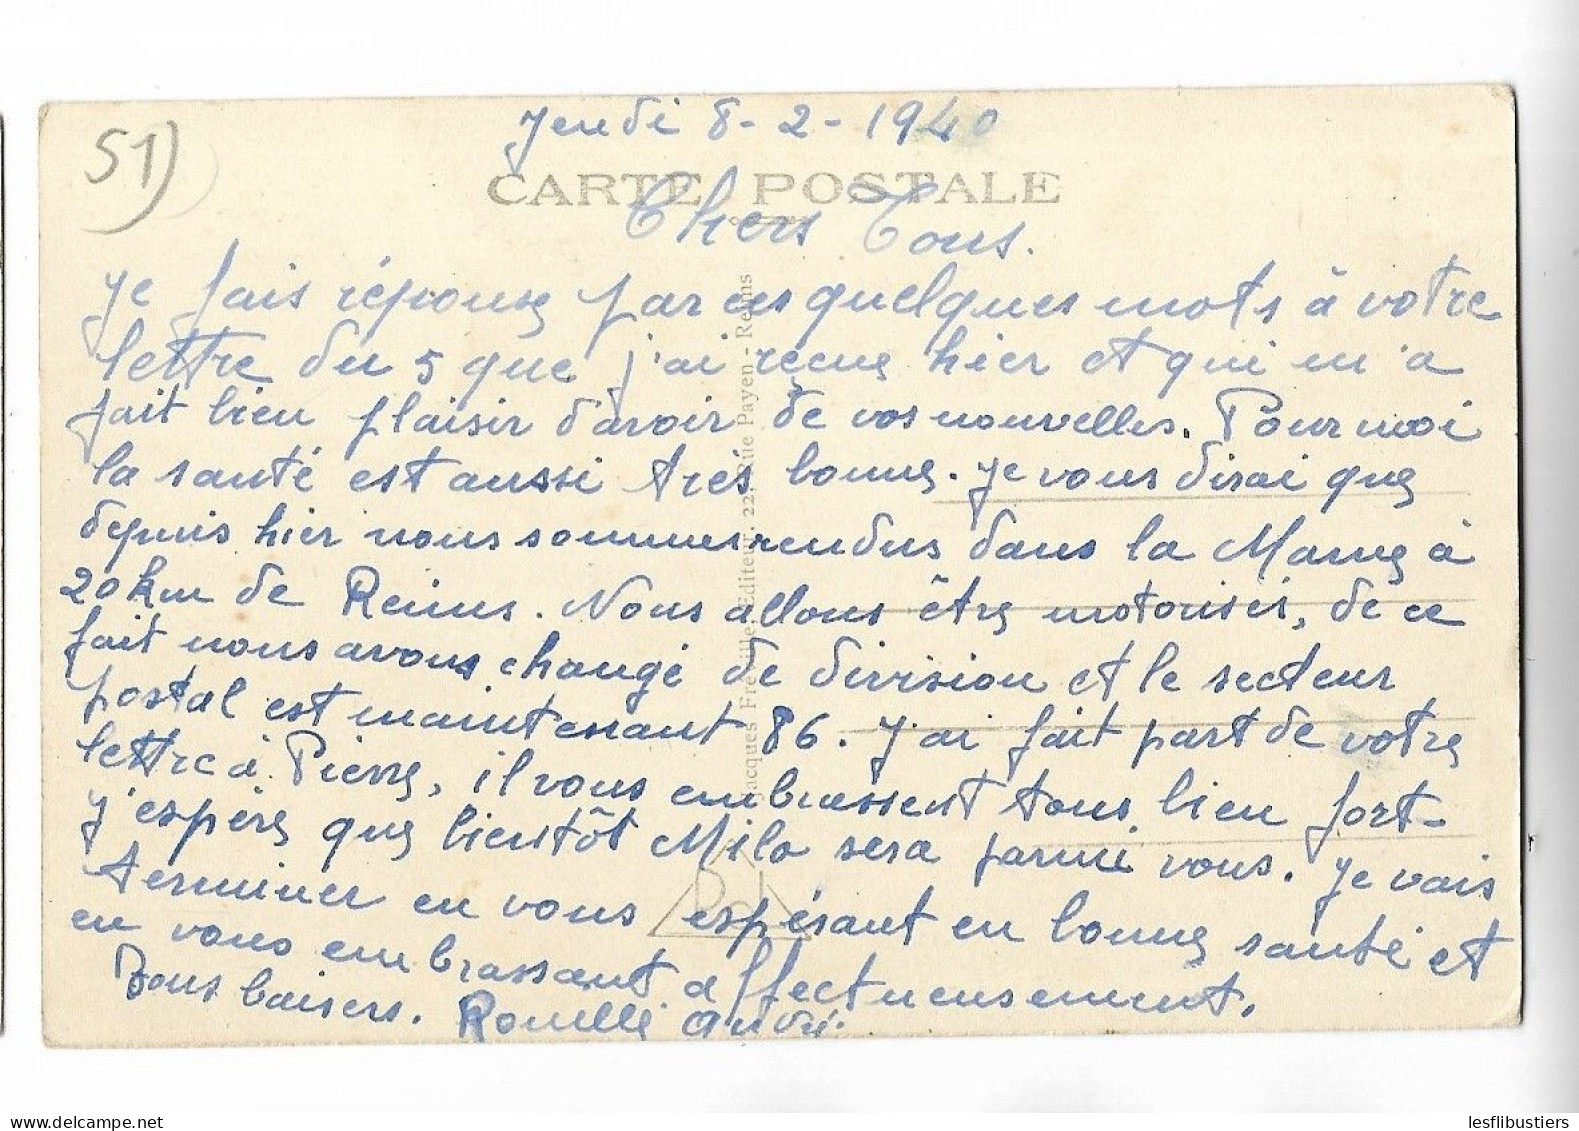 51)
Jeudi 8-2-1940
CARTE POSTALE
Chers Tous.
Je fais réponse par ces quelques mots à votre
lettre du 5 que j'ai reçue hier et qui m'a
fait bien plaisir d'avoir de vos nouvelles. Pour moi
la santé est aussi très bonne. Je vous dirai que
depuis hier nous sommes rendus dans la Marne à
20 km de Reims. Nous allons être motorisés, de ce
fait nous avons changé de division et le secteur
postal est maintenant 86. J'ai fait part de votre
lettre à Pierre, il vous embrassent tous bien fort.
J'espère que bientôt Milo sera parmi vous. Je vais
terminer en vous espérant en bonne santé et
en vous embrassant affectueusement.
Bons baisers. Rouillé André.
Jacques Fréville, Editeur, 22, Rue Payen - Reims
lesflibustiers